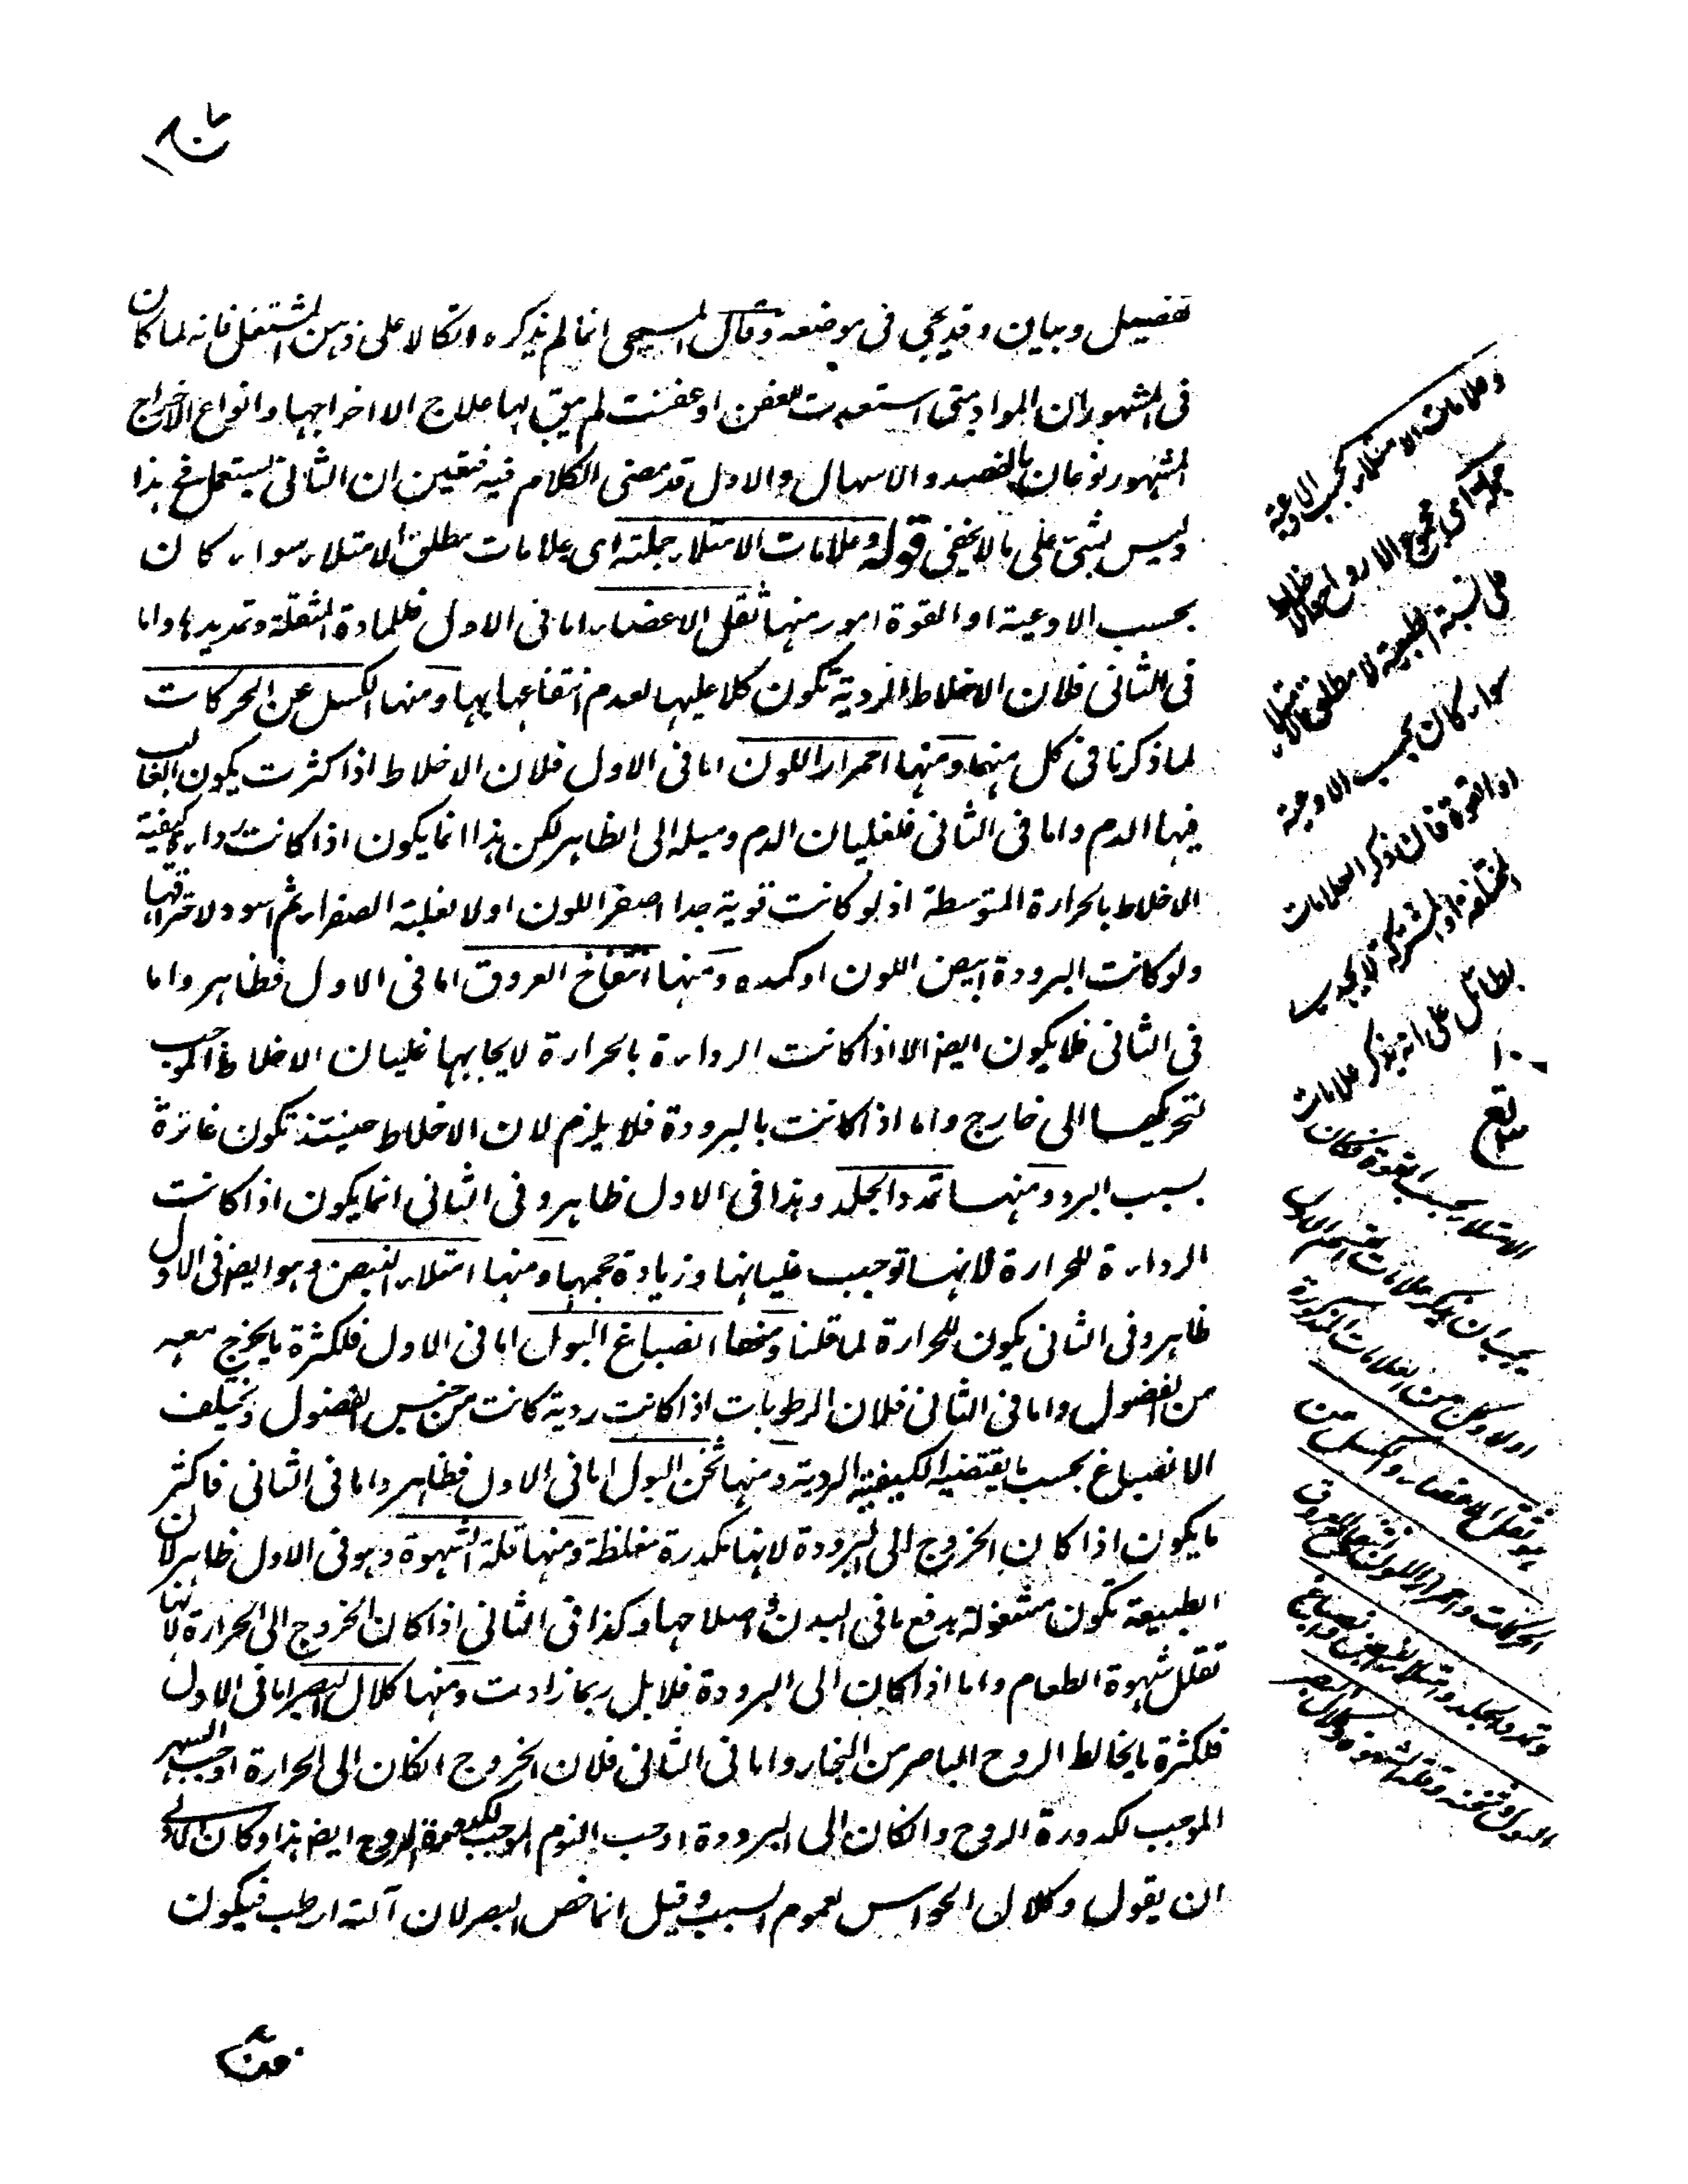 تفصيل وبيان وقد يجي فى موضعه وقال المسيحى انما لم يذكره اتكالا على ذهن المشتغل فانه لما كان
فى المشهور ان المواد متى استعدت للتعفن او عفنت لم يبق لها علاج الا اخراجها وانواع الاخراج
المشهور نوعان بالفصد والاسهال والاول قد مضى الكلام فيه فتعين ان الثانى يستعمل فى هذا
وليس بشئ على ما لا يخفى قوله وعلامات الامتلاء جملته اى علامات مطلق الامتلاء سواء كان
بحسب الاوعية او القوة امور منها ثقل الاعضاء اما فى الاول فللمادة المثقلة وتمديدها واما
فى الثانى فلان الاخلاط الردية تكون كلا عليها لعدم انتفاعها بها ومنها الكسل عن الحركات
لما ذكرنا فى كل منهما ومنها احمرار اللون اما فى الاول فلان الاخلاط اذا كثرت يكون الغالب
فيها الدم واما فى الثانى فلغليان الدم وميله الى الظاهر لكن هذا انما يكون اذا كانت رداءة كيفية
الاخلاط بالحرارة المتوسطة اذ لو كانت قوية جدا اصفر اللون اولا لغلبة الصفراء ثم اسود لاحتراقها
ولو كانت البرودة ابيض اللون او كمده ومنها انتفاخ العروق اما فى الاول فظاهر واما
فى الثانى فلا يكون ايضا الا اذا كانت الرداءة بالحرارة لايجابها غليان الاخلاط الموجب
لتحريكها الى خارج واما اذا كانت بالبرودة فلا يلزم لان الاخلاط حينئذ تكون غائرة
بسبب البرد ومنها تمدد الجلد وهذا فى الاول ظاهر وفى الثانى انما يكون اذا كانت
الرداءة للحرارة لانها توجب غليانها وزيادة حجمها ومنها امتلاء النبض وهو ايضا فى الاول
ظاهر وفى الثانى يكون للحرارة لما قلنا ومنها انصباغ البول اما فى الاول فلكثرة ما يخرج معه
من الفضول واما فى الثانى فلان الرطوبات اذا كانت ردية كانت من جنس الفضول ويختلف
الانصباغ بحسب ما يقتضيه الكيفية الردية ومنها ثخن البول اما فى الاول فظاهر واما فى الثانى فاكثر
ما يكون اذا كان الخروج الى البرودة لانها مكدرة مغلظة ومنها قلة الشهوة وهو فى الاول ظاهر لان
الطبيعة تكون مشغولة بدفع ما فى البدن واصلاحها وكذا فى الثانى اذا كان الخروج الى الحرارة لانها
تقلل شهوة الطعام واما اذا كان الى البرودة فلا بل ربما زادت ومنها كلال البصر اما فى الاول
فلكثرة ما يخالط الروح الباصر من البخار واما فى الثانى فلان الخروج انكان الى الحرارة اوجب السهر
الموجب لكدورة الروح وانكان الى البرودة اوجب النوم الموجب الروح ايضا هذا وكان الاولى
ان يقول وكلال الحواس لعموم السبب وقيل انما خص البصر لان آلته ارطب فيكون
وعلامات الامتلاء بحسب الاوعية
جملة اى مجموع
على النسبة الطبيعية لا مطلق الامتلاء
سواء كان بحسب الاوعية
او القوة فان ذكر العلامات
المختلفة او المشتركة لا يجدى
بطائل على انه يذكر علامات
الامتلاء بحسب القوة فكان
يجب ان يذكر علامات القسم الاول
اولا ولكن من العلامات المذكورة
هو ثقل الاعضاء والكسل عن
الحركات واحمرار اللون وانتفاخ العروق
وتمدد الجلد وامتلاء النبض وانصباغ
البول وثخنه وقلة الشهوة وكلال البصر